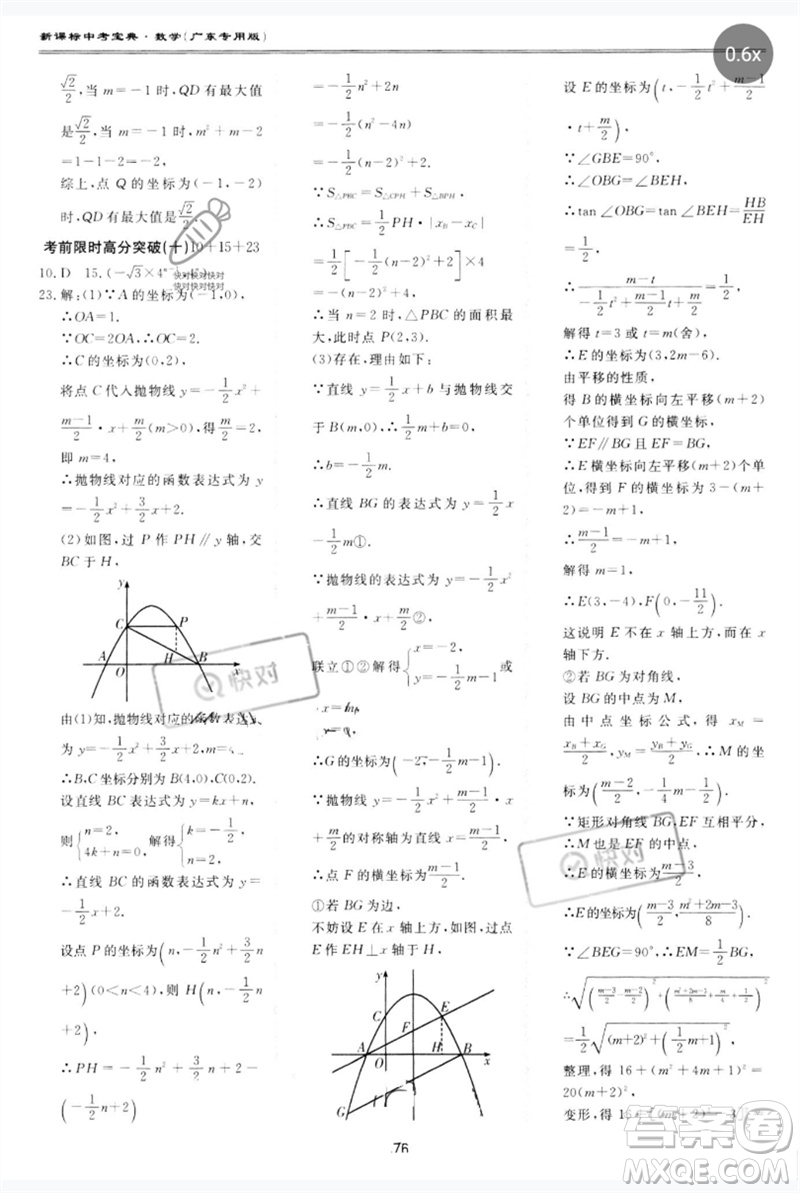 新课标中考宝典·数学(广东专用版)
0.6x
√2/2,当 m=-1时,QD有最大值
是√2/2,当 m=-1时,m²+m-2
=1-1-2=-2.
综上,点 Q 的坐标为(-1,-2)
时,QD有最大值√2/2.
考前限时高分突破(十)10+15+23
10.D 15.(-√3×4ⁿ
快对快对快对
快对快对快对
23.解:(1)∵A 的坐标为(-1,0),
∴OA=1.
∵OC=2OA,∴OC=2.
∴C 的坐标为(0,2).
将点 C 代入抛物线 y=-1/2x²+
(m-1)/2·x+m/2(m>0),得m/2=2,
即 m=4,
∴抛物线对应的函数表达式为 y
=-1/2x²+3/2x+2.
(2)如图,过 P 作 PH∥y 轴,交
BC 于 H,
y
C P
H
A O B x
由(1)知,抛物线对应的函数表达式
为 y=-1/2x²+3/2x+2.
∴B,C 坐标分别为 B(4,0),C(0,2).
设直线 BC 的表达式为 y=kx+n,
则{n=2, 4k+n=0. 解得{k=-1/2, n=2.
∴直线 BC 的函数表达式为 y=
-1/2x+2.
设点 P 的坐标为(n,-1/2n²+3/2n
+2)(0<n<4),则 H(n,-1/2n
+2),
∴PH=-1/2n²+3/2n+2-
(-1/2n+2)
=-1/2n²+2n
=-1/2(n²-4n)
=-1/2(n-2)²+2.
∵S△PBC=S△CPH+S△BPH,
∴S△PBC=1/2PH·|x_B-x_C|
=1/2[-1/2(n-2)²+2]×4
=-(n-2)²+4,
∴当 n=2 时,△PBC 的面积最
大,此时点 P(2,3).
(3)存在,理由如下:
∵直线 y=1/2x+b 与抛物线交
于 B(m,0),∴1/2m+b=0.
∴b=-1/2m.
∴直线 BG 的表达式为 y=1/2x
-1/2m①.
∵抛物线的表达式为 y=-1/2x²
+(m-1)/2·x+m/2②,
联立①②解得{x=-2, y=-1/2m-1 或
{x=m,
∴G 的坐标为(-2,-1/2m-1).
∵抛物线 y=-1/2x²+(m-1)/2·
x+m/2的对称轴为直线 x=(m-1)/2,
∴点 F 的横坐标为(m-1)/2.
①若 BG 为边,
不妨设 E 在 x 轴上方,如图,过点
E 作 EH⊥x 轴于 H,
y
C E
F
A O H B x
G
设 E 的坐标为(t,-1/2t²+(m-1)/2
·t+m/2),
∵∠GBE=90°,
∴∠OBG=∠BEH,
∴tan ∠OBG=tan ∠BEH=HB/EH
∴1/2=(m-t)/(-1/2t²+(m-1)/2·t+m/2).
解得 t=3 或 t=m(舍),
∴E 的坐标为(3,2m-6).
由平移的性质,
得 B 的横坐标向左平移(m+2)
个单位得到 G 的横坐标,
∵EF∥BG 且 EF=BG,
∴E 横坐标向左平移(m+2)个单
位,得到 F 的横坐标为 3-(m+2)
=-m+1,
∴(m-1)/2=-m+1.
解得 m=1,
∴E(3,-4),F(0,-11/2).
这说明 E 不在 x 轴上方,而在 x
轴下方.
②若 BG 为对角线,
设 BG 的中点为 M,
由中点坐标公式,得 x_M=
(x_B+x_G)/2,y_M=(y_B+y_G)/2,∴M 的坐
标为((m-2)/2,-1/4m-1/2).
∵矩形对角线 BG,EF 互相平分,
∴M 也是 EF 的中点,
∴E 的横坐标为(m-3)/2,
∴E 的坐标为((m-3)/2,(m²+2m-3)/8).
∵∠BEG=90°,∴EM=1/2BG,
∴√(((m-3)/2-(m-2)/2)²+((m²+2m-3)/8+(m+2)/4)²)
=1/2√((m+2)²+(1/2m+1)²).
整理,得 16+(m²+4m+1)²=
20(m+2)²,
变形,得 16+[(m+2)²-3]²
快对
快对
76
答案圈
MXQE.COM